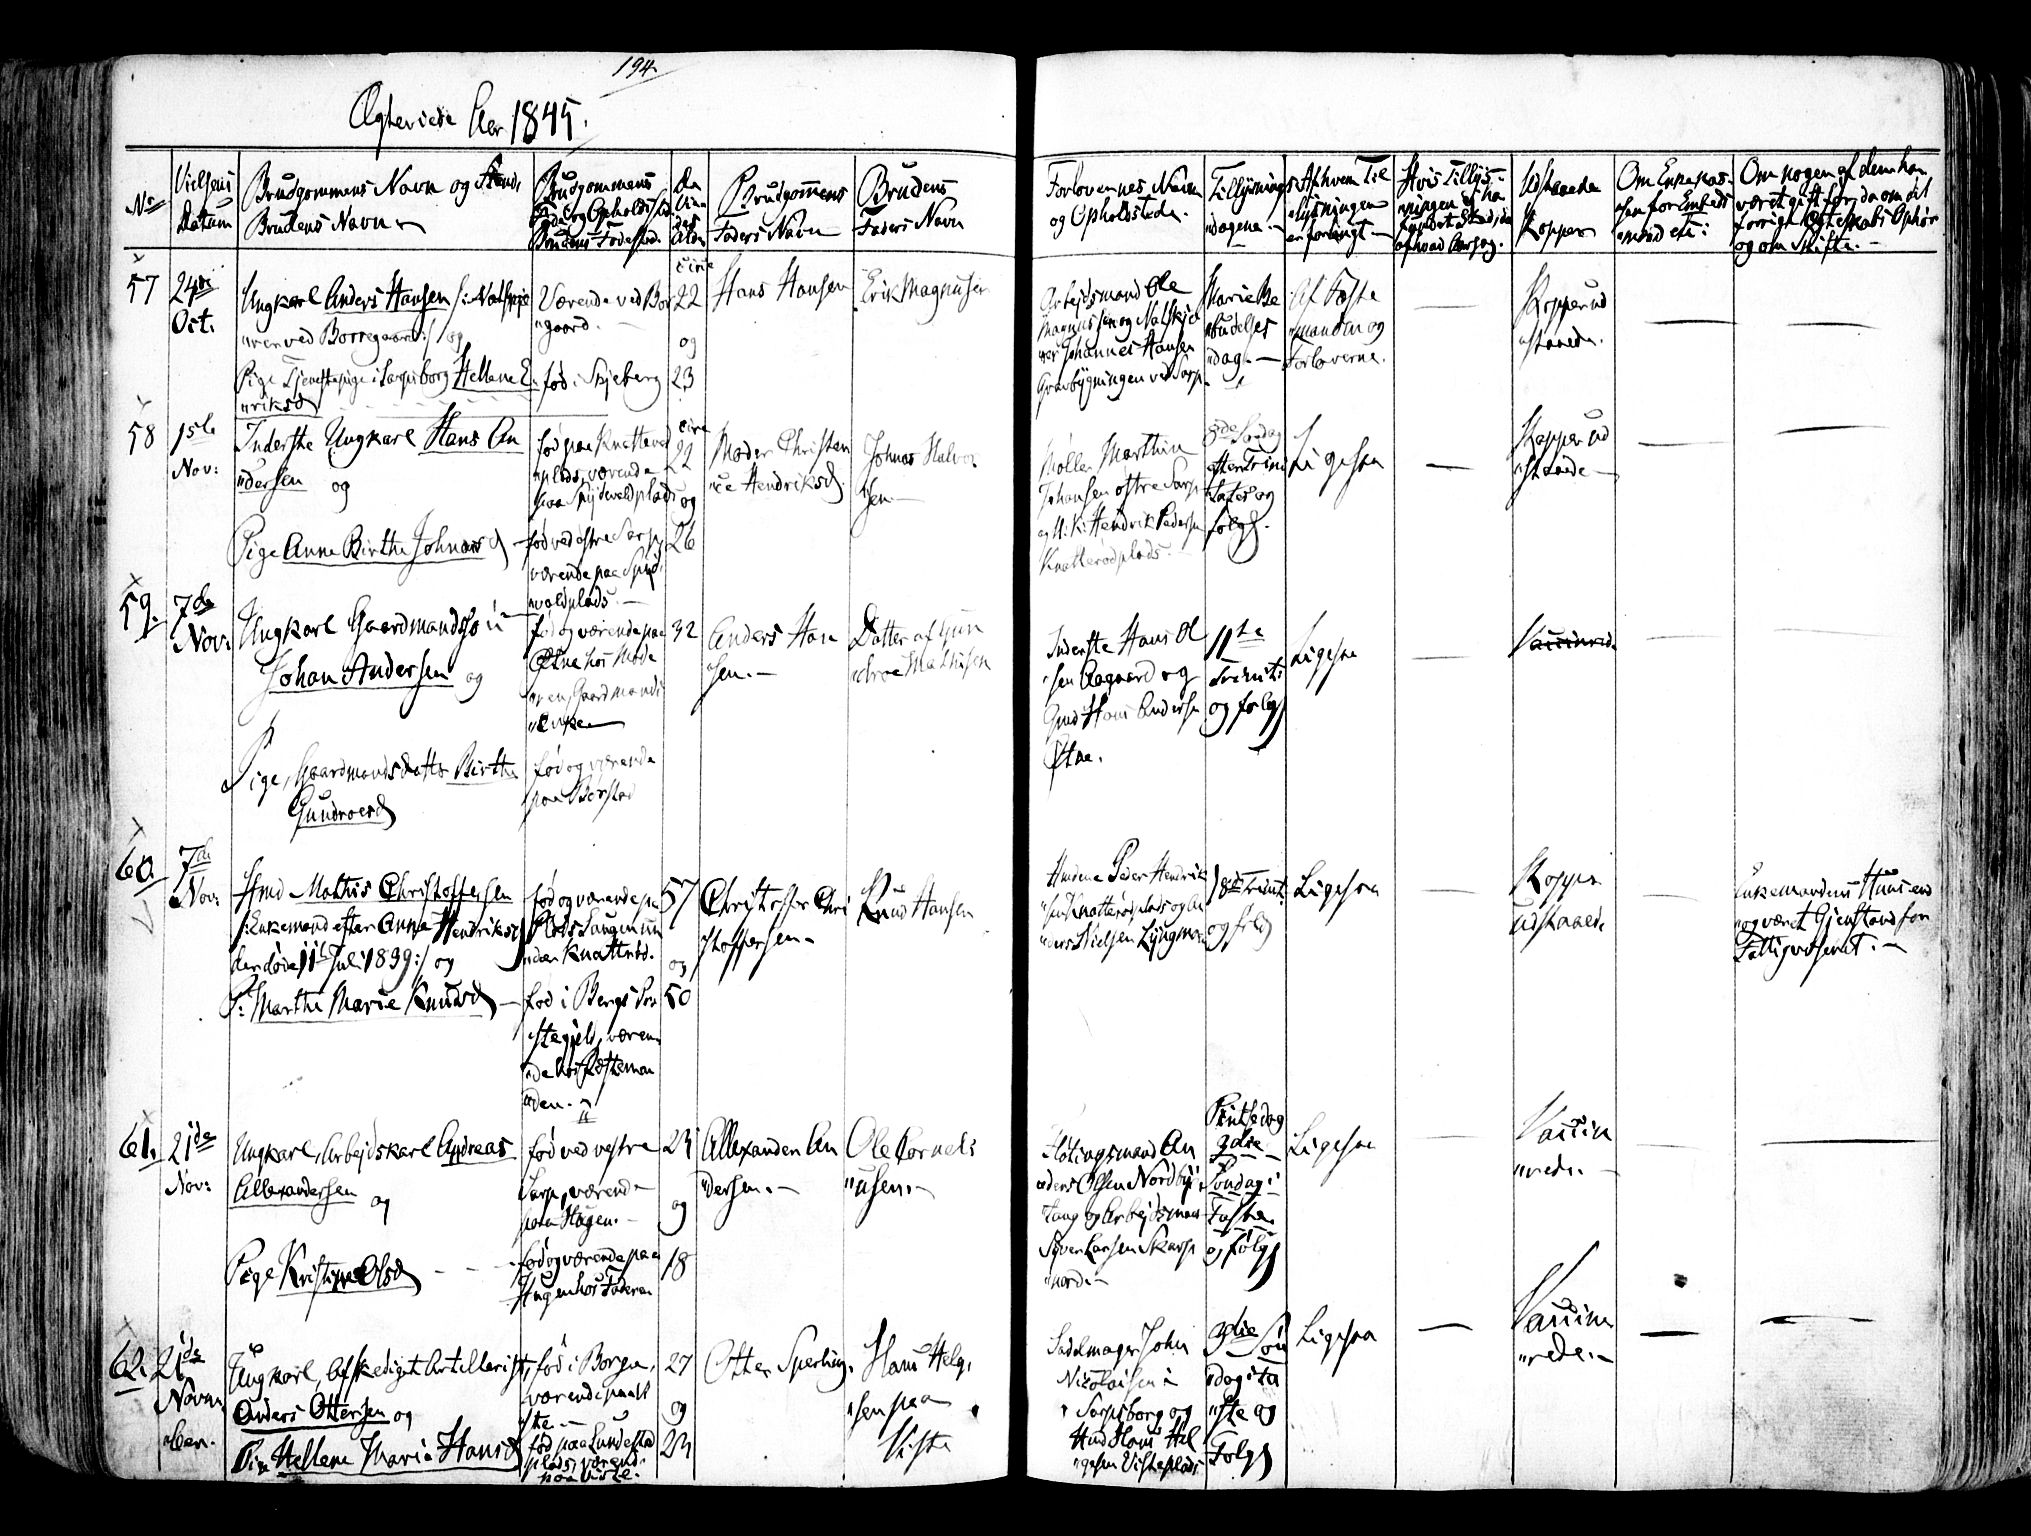 194.
Ægteviede Aar 1845.
No
Vielsens
Datum
Brudgommens Navn og Stand,
Brudens Navn
Brudgommens
Føde og Opholdsted
Brudens Fødested
Brudgommens
Faders Navn
Brudens
Faders Navn
Forlovernes Navn
og Opholdsteder.
Tillysnings
dagene.
Af hvem Til
lysningen
er forlangt
Udstaaede
Kopper
Om nogen af dem har
været gift før, da om det
forrige Ægteskabs Ophør
og om Skifte.
57
24de
Oct.
Ungkarl Anders Hansen
ved Borregaard :/ og
Pige Tjenestepige i Sarpsborg Hellene E
riksd
Værende ved Bor
gaard.
fød i Skjeberg
circa
22
og
23
Hans Hansen
Erik Magnusen
Arbejdsmand Ole
Magnussen og
Johannes Hansen
ved Sarp.
Marie Be
budelses
dag.
Af Fæste
manden og
Forloverne.
Kopper ud
staaede.
58
1ste
Nov:
Inderste Ungkarl Hans An
dersen og
Pige Anne Birthe Johnsd
fød paa Knatterød
plads, værende
paa Spydevoldplads
fød ved østre Sarp
værende paa Spyd
voldplads.
circa
22
og
26
Moder Christen
ce Hendriksd.
Johnas Halvor
sen.
Møller Marthin
Johansen østre Sarp
og H: K: Hendrik Pedersen
Knatterødplads.
Søndag
efter Trini
tatis og
følg.
Ligesaa
Kopper ud
staaede
59.
7de
Nov:
Ungkarl Gaardmandssøn
Johan Andersen og
Pige, Gaardmandsdatter Birthe
Gundroesd
fød og værende paa
hos Mode
ren, Gaardmands
Enke
fød og værende
paa Borstad
32
Anders Han
sen.
Datter af Gun
droe Mathisen
Inderste Hans Ol
sen Aagaard og
Gmd Hans Andersen
11te
Trinit:
og følg
Ligesaa
Vaccinered.
60.
7de
Nov:
Hmd Mathis Christoffersen
/: Enkemand efter Anna Hendriksd
der døde 11te Juli 1839 :/ og
P: Marthe Marie Knudsd
fød og værende paa
Plads Haugen un
der Knatterød.
fød i Bergs Præ
stegjeld, væren
de hos Fæsteman
den.
57
og
50
Christoffer Chri
stoffersen
Knud Hansen
Hmdene Peder Hendrik
sen Knatterødplads og An
ders Nielsen
18de Trinit:
og følg
Ligesaa
Kopper
Udstaaede
Enkemandens Huus er
og været Gjenstand for
Fattigvæsenet.
61.
21de
Nov:
Ungkarl, Arbejdskarl Andreas
Allexandersen og
Pige Kristine Olsd
fød ved vestre
Sarp, værende
paa Hagen.
fød og værende paa
Hagen hos Faderen
23
og
18
Allexander An
dersen.
Ole Corneli
usen.
Fløtingsmand An
ders Olsen Nordby i
Tune og Arbejdsmand
Syver Larsen Skarpe
nord.
Pintsedag
3die
Søndag i
Faste
og følg
Ligesaa
Vaccine
rede.
62.
21de
Novem
ber.
Ungkarl, Afskediget Artellerist,
Anders Ottersen og
Pige Hellene Maria Hansd
fød i Borgen,
værende paa
fød paa Lundestad
plads, værende
paa Viste.
27
og
23
Otter Sperling.
Hans Helge
sen paa
Viste
Sadelmager John
Nicolaisen i
Sarpsborg og
Hmd Hans Hel
gesen Visteplads
3die Søn
dag i Fa
ste og
Følg
Ligesaa
Vaccine
rede.